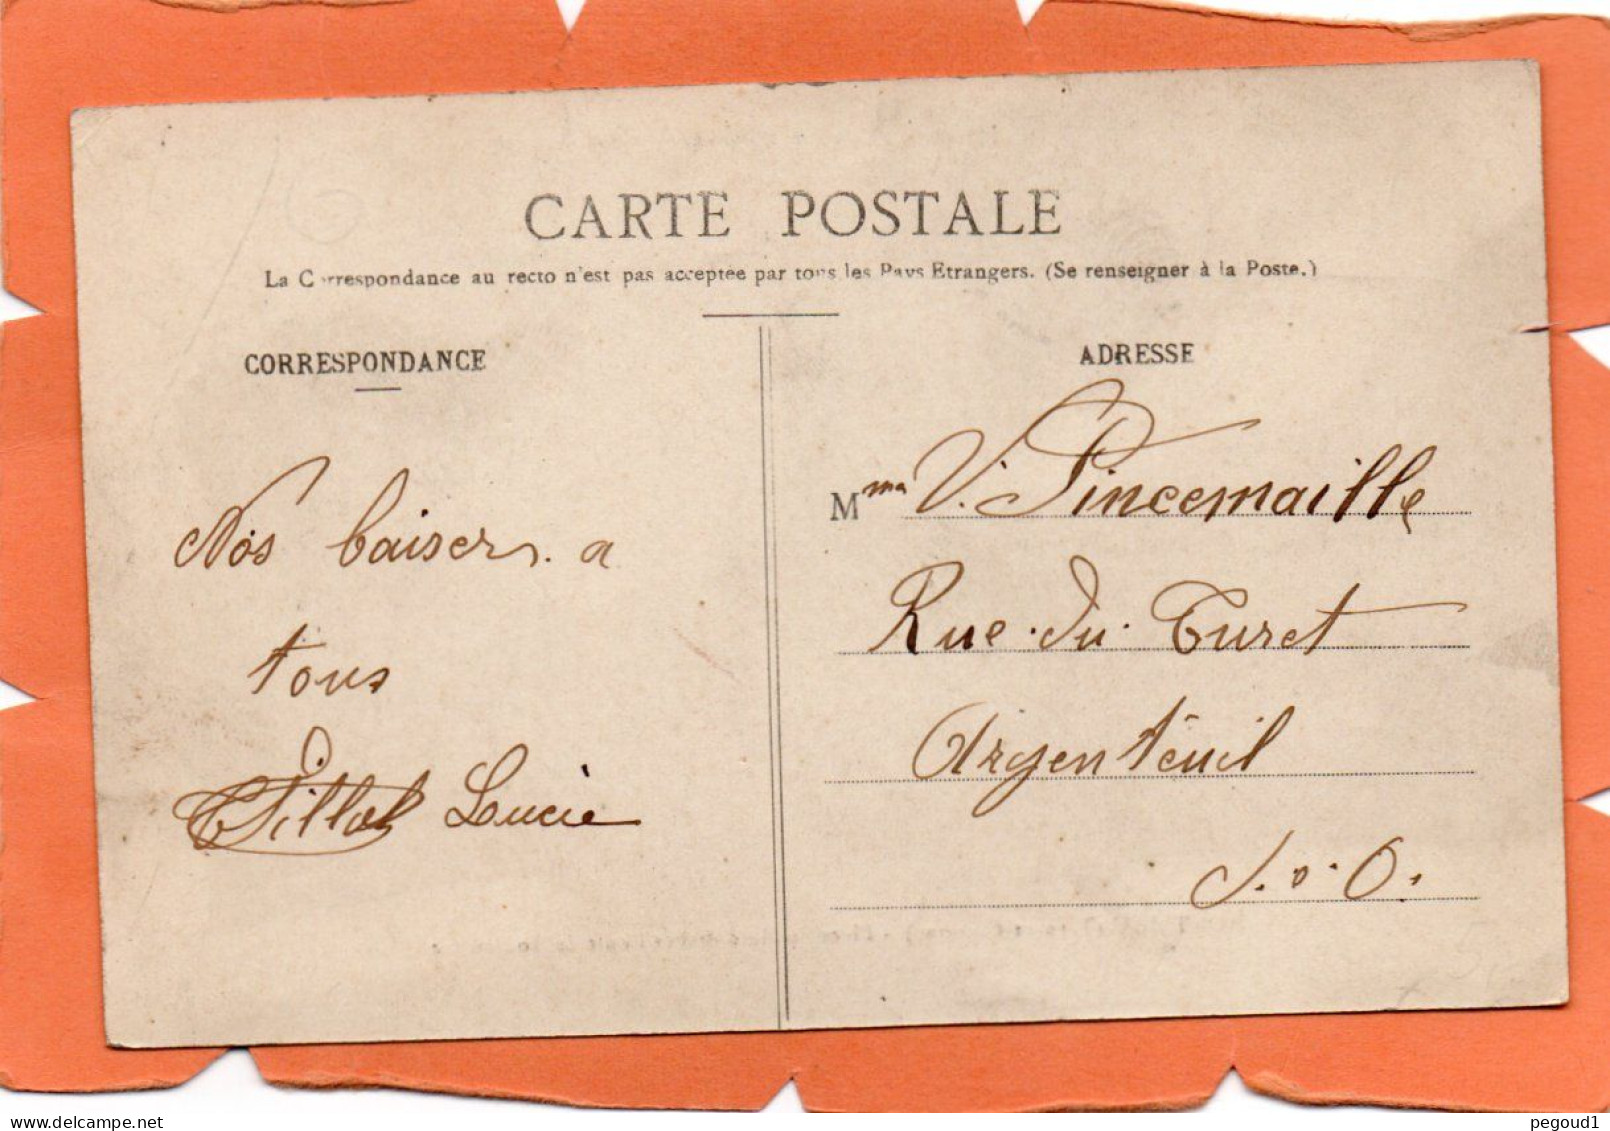 CARTE POSTALE
La Correspondance au recto n'est pas acceptée par tous les Pays Etrangers. (Se renseigner à la Poste.)
CORRESPONDANCE
Nos baisers a
tous
Lucie
ADRESSE
Mme V. Pincemaille
Rue du Turet
Argenteuil
S. O.
pegoud1